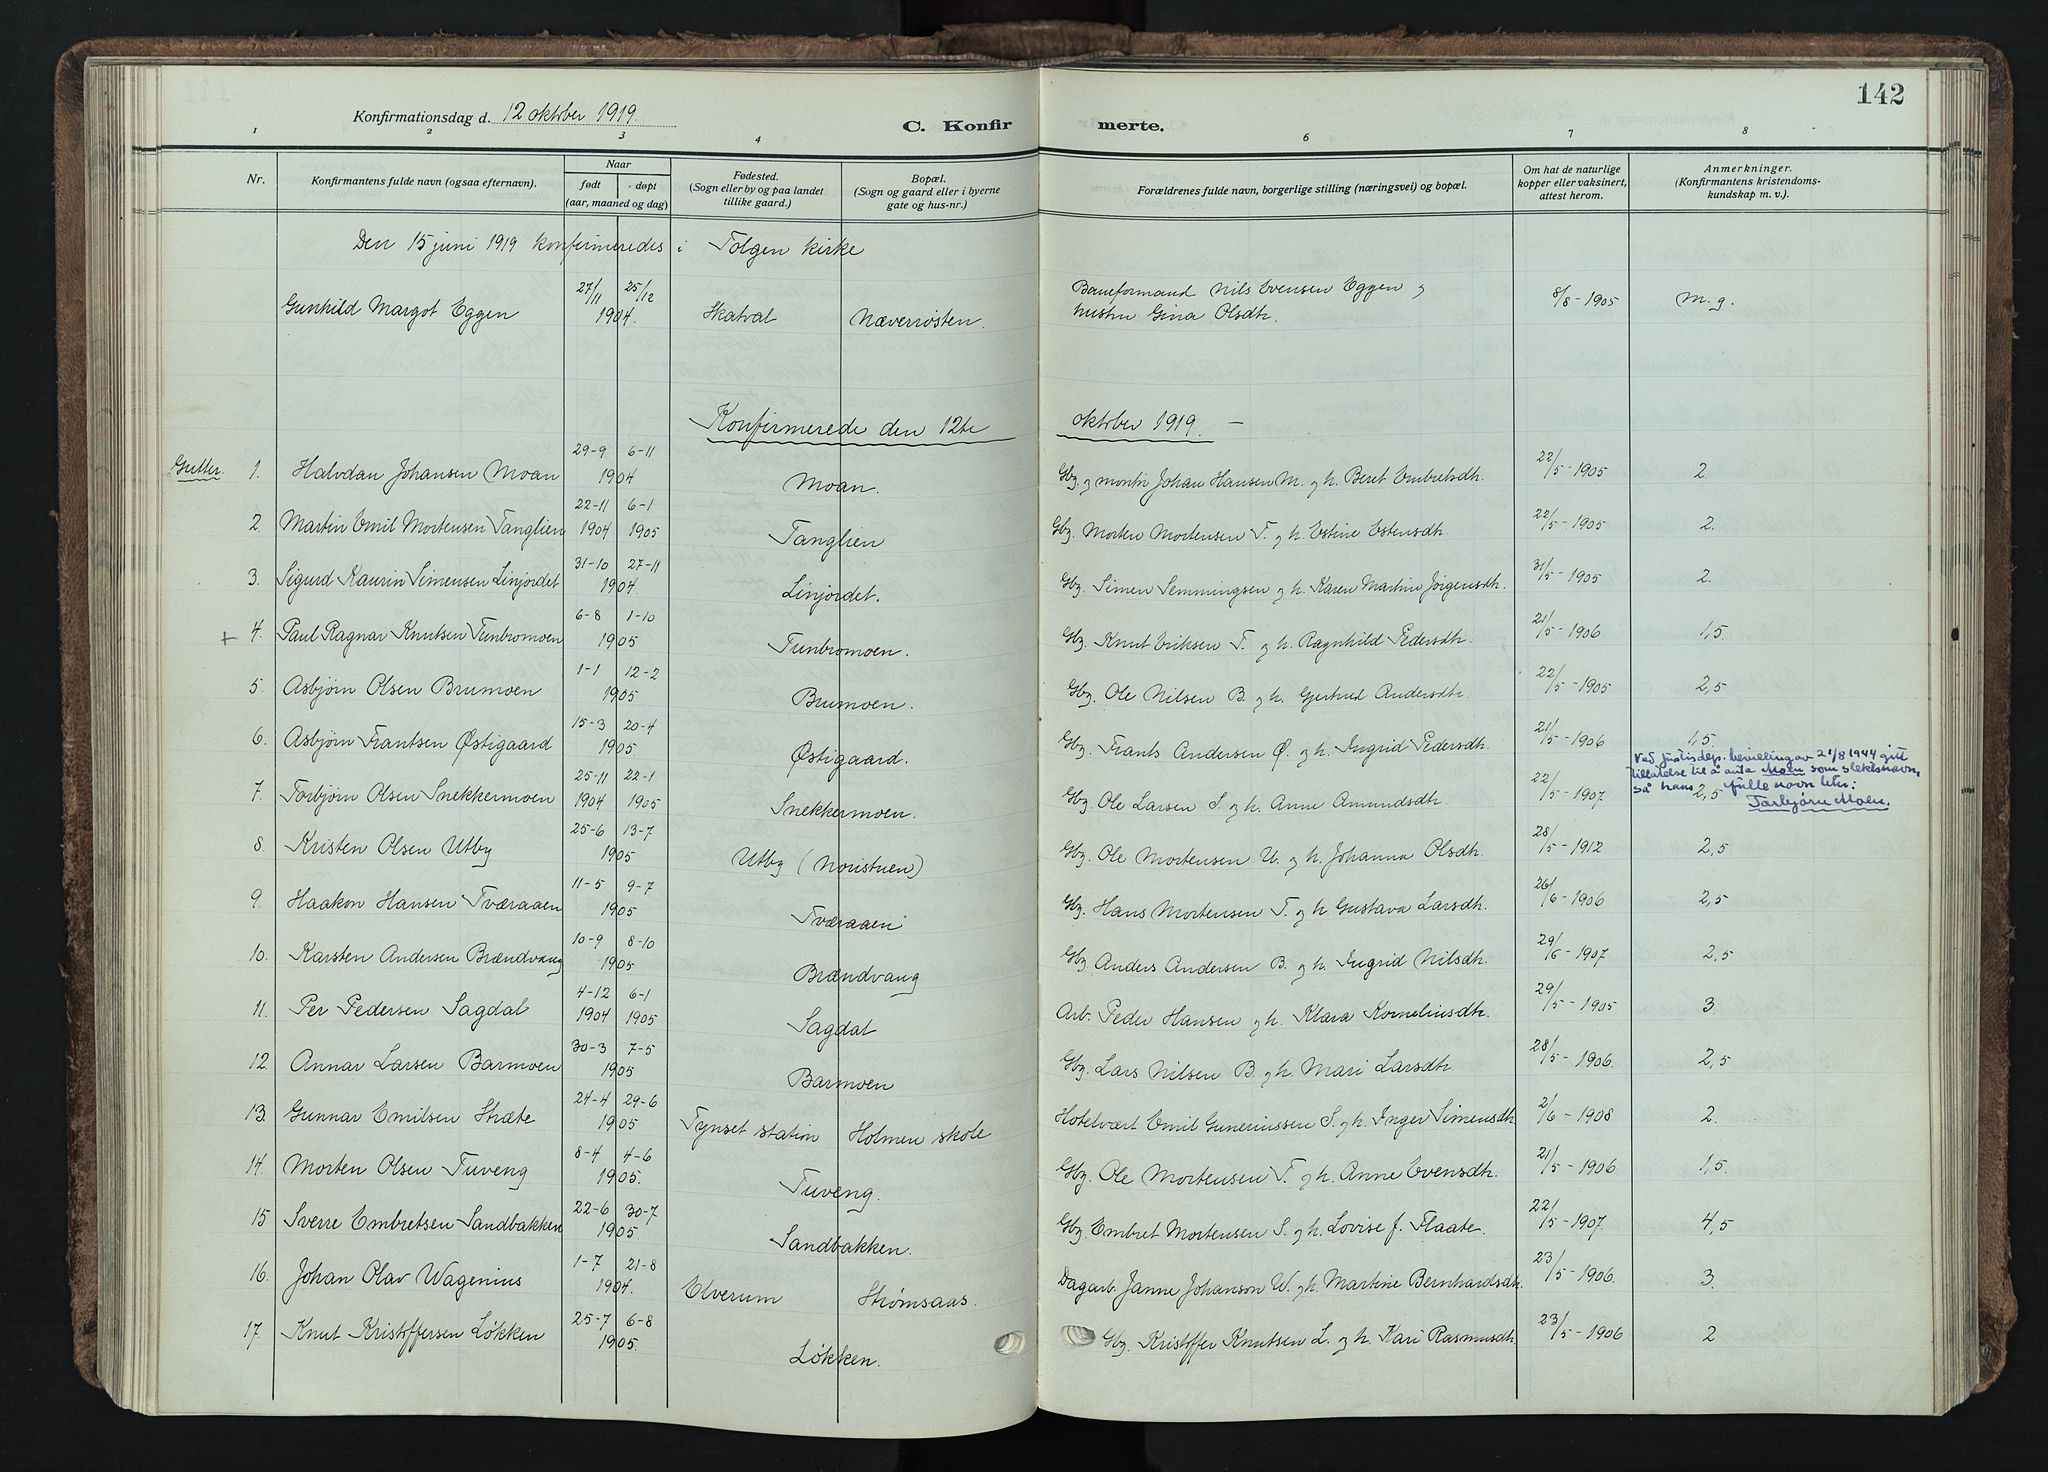 142
Konfirmationsdag d. 12 oktober 1919.
C. Konfir merte.
1 2 3 4 6 7 8
Nr.
Konfirmantens fulde navn (ogsaa efternavn).
Naar
født døpt
(aar, maaned og dag)
Fødested.
(Sogn eller by og paa landet
tillike gaard.)
Bopæl.
(Sogn og gaard eller i byerne
gate og hus-nr.)
Forældrenes fulde navn, borgerlige stilling (næringsvei) og bopæl.
Om hat de naturlige
kopper eller vaksinert,
attest herom.
Anmerkninger.
(Konfirmantens kristendoms-
kundskap m. v.).
Den 15 juni 1919 konfirmeredes i Tolgen kirke
Gunhild Margot Eggen 27/11 25/12 1904. Skatval Næverrosten. Baneformand Nils Evensen Eggen og hustru Gina Olsdtr. 8/8-1905 M. g.
Konfirmerede den 12te oktober 1919. -
Gutter. 1. Halvdan Johansen Moan 29-9 6-11 1904 Moan. Gbr. og montør Johan Hansen M. og h. Beret Embretsdtr. 22/5-1905 2.
2. Martin Emil Mortensen Tanglien 22-11 1904 6-1 1905 Tanglien Gbr. Morten Mortensen T. og h. Estine Estensdtr. 22/5-1905 2.
3. Sigurd Kaurin Simensen Linjordet 31-10 27-11 1904. Linjordet. Gbr. Simen Semmingsen og h. Karen Martine Jørgensdtr. 31/5-1905 2.
+ 4. Paul Ragnar Knutsen Tunbromoen 6-8 1-10 1905 Tunbromoen. Gbr. Knut Eriksen T. og h. Ragnhild Pedersdtr. 21/5-1906 1,5.
5. Asbjørn Olsen Brumoen 1-1 12-2 1905 Brumoen. Gbr. Ole Nilsen B. og h. Gjertrud Andersdtr. 22/5-1905 2,5
6. Asbjørn Frantsen Østigaard 15-3 20-4 1905 Østigaard. Gbr. Frants Andersen Ø. og h. Ingrid Pedersdtr. 21/5-1906 1,5
Ved Justisdep. bevilling av 21/8 1944 gitt
tillatelse til å anta Moen som slektsnavn,
så hans fulle navn blir:
Torbjørn Moen.
7. Torbjørn Olsen Snekkermoen 25-11 1904 22-1 1905 Snekkermoen. Gbr. Ole Larsen S. og h. Anne Amundsdtr. 22/5-1907 2,5
8. Kristen Olsen Utby 25-6 13-7 1905 Utby (Noristuen) Gbr. Ole Mortensen U. og h. Johanna Olsdtr. 28/5-1912 2,5
9. Haakon Hansen Tværaaen 11-5 9-7 1905 Tværaaen Gbr. Hans Mortensen T. og h. Gustava Larsdtr. 26/6-1906 2,5
10. Karsten Andersen Brændvang 10-9 8-10 1905 Brændvang Gbr. Anders Andersen B. og h. Ingrid Nilsdtr. 29/6-1907 2.5
11. Per Pedersen Sagdal 4-12 1904 6-1 1905 Sagdal Arb. Peder Hansen og h. Klara Korneliusdtr. 29/5-1905 3
12 Annar Larsen Barmoen 30-3 7-5 1905 Barmoen Gbr. Lars Nilsen B. og h. Mari Larsdtr. 28/5-1906. 2,5
13. Gunnar Emilsen Stræte 24-4 29-6 1905 Tynset station Holmen skole Hotelvært Emil Gunerinssen S. og h. Inger Simensdtr. 2/6-1908 2.
14. Morten Olsen Tuveng 8-4 4-6 1905. Tuveng. Gbr. Ole Mortensen T. og h. Anne Evensdtr. 21/5-1906 1,5.
15 Sverre Embretsen Sandbakken 22-6 30-7 1905 Sandbakken. Gbr. Embret Mortensen S. og h. Lovise f. Flaate. 22/5-1907. 4,5
16. Johan Olav Wagenius 1-7 21-8 1904. Elverum Strømsaas. Dagarb. Janne Johanson W. og h. Martine Bernhardsdtr. 23/5-1906. 3.
17. Knut Kristoffersen Løkken 25-7 6-8 1905. Løkken. Gbr. Kristoffer Knutsen L. og h. Kari Rasmusdtr. 23/5-1906 2